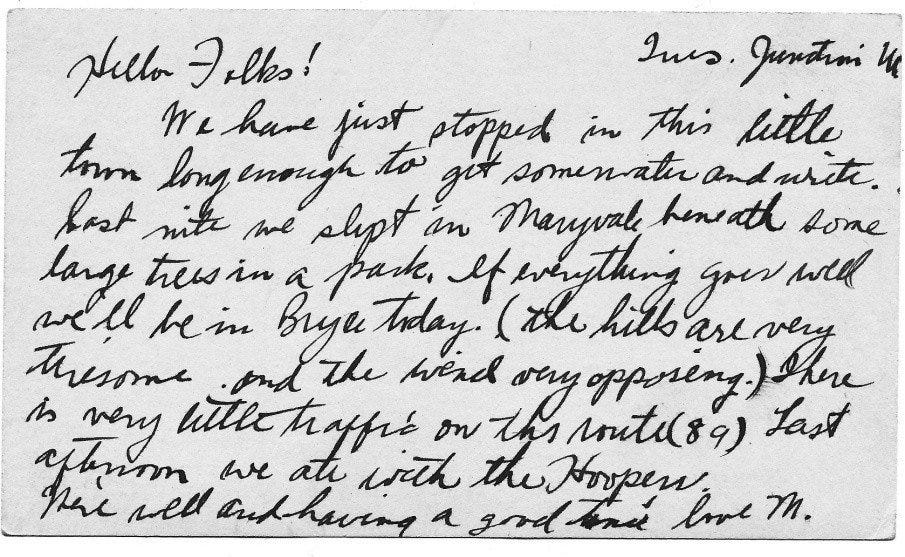 Hello Folks! Tues. Junction Ut
We have just stopped in this little
town long enough to get some water and write.
Last nite we slept in Maryvale beneath some
large trees in a park. If everything goes well
we'll be in Bryce today. (the hills are very
tiresome and the wind very opposing.) There
is very little traffic on this route (89) Last
afternoon we ate with the Hoopers.
We're well and having a good time love M.